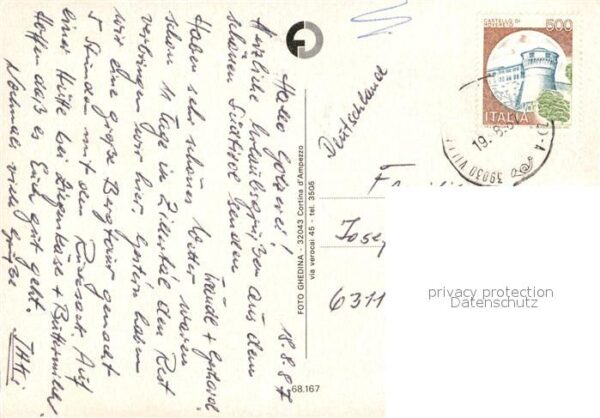 18.8.87
Hallo Goteret!
Herzliche Urlaubsgrüßen aus dem
schönen Südtirol senden
Traudl + Gerhard.
Haben sehr schönes Wetter waren
schon 11 Tage in Zillertal den Rest
verbringen wir hier. Gestern haben
wir eine große Bergtour gemacht
5 Stunden mit den Rucksack. Auf
einer Hütte bei Ziegenkäse + Buttermilch
Hoffen daß es Euch gut geht.
Nochmals viele Grüße
FOTO GHEDINA - 32043 Cortina d'Ampezzo
via verocai 45 - tel. 3505
68.167
Deutschland
Josep
6311
CASTELLO DI
ROVERETO
500
ITALIA
19.8.8
39030
privacy protection
Datenschutz